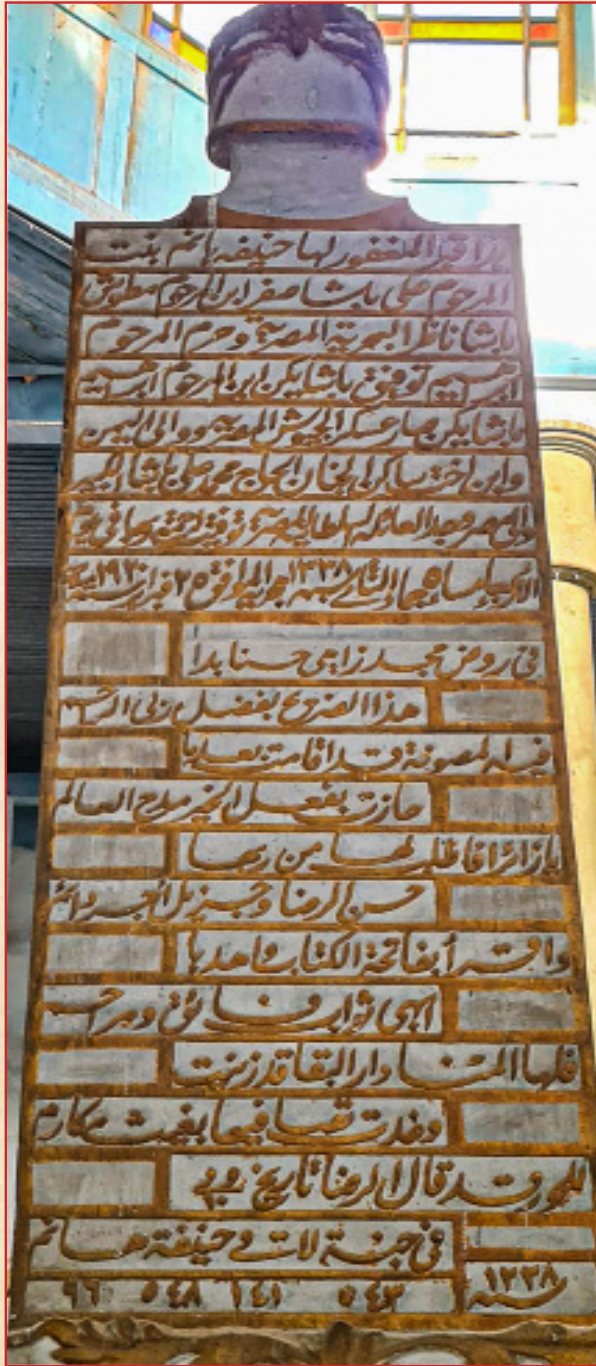 هذا قبر المغفور لها حنيفه هانم بنت
المرحوم على باشا صفر ابن المرحوم مطوش
باشا ناظر البحرية المصرية وحرم المرحوم
ابراهيم توفيق باشا يكن ابن المرحوم ابراهيم
باشا يكن صار عسكر الجيوش المصرية ووالى اليمن
وابن اخت ساكن الجنان الحاج محمد على باشا الكبير
والى مصر وجد العائلة السلطانية المصرية توفيت في يوم
الاربعاء جماد الثاني سنة ١٣٣٨ هجرية الموافق ٢٥ فبراير سنة ١٩٢٠
فى روض مجد زاهى حسنا بدا
هذا الضريح بفضل ربى الراحم
فيه المصونة قد اقامت بعدما
حازت بفعل الخير مدح العالم
يا زائرا فاطلب لها من ربها
حسن الرضا وجزيل أجر دائم
واقرأ بفاتحة الكتاب واهدها
ابهى ثواب فائق ومراحم
فلها المنا دار البقا قد زينت
وغدت فيها بغيث مكارم
للحور قد قال الرضا تاريخ
فى جنة لات وحنيفة هانم
سنة ١٣٣٨
٥٤٣ ١٤١ ٥٤٨ ٩٦